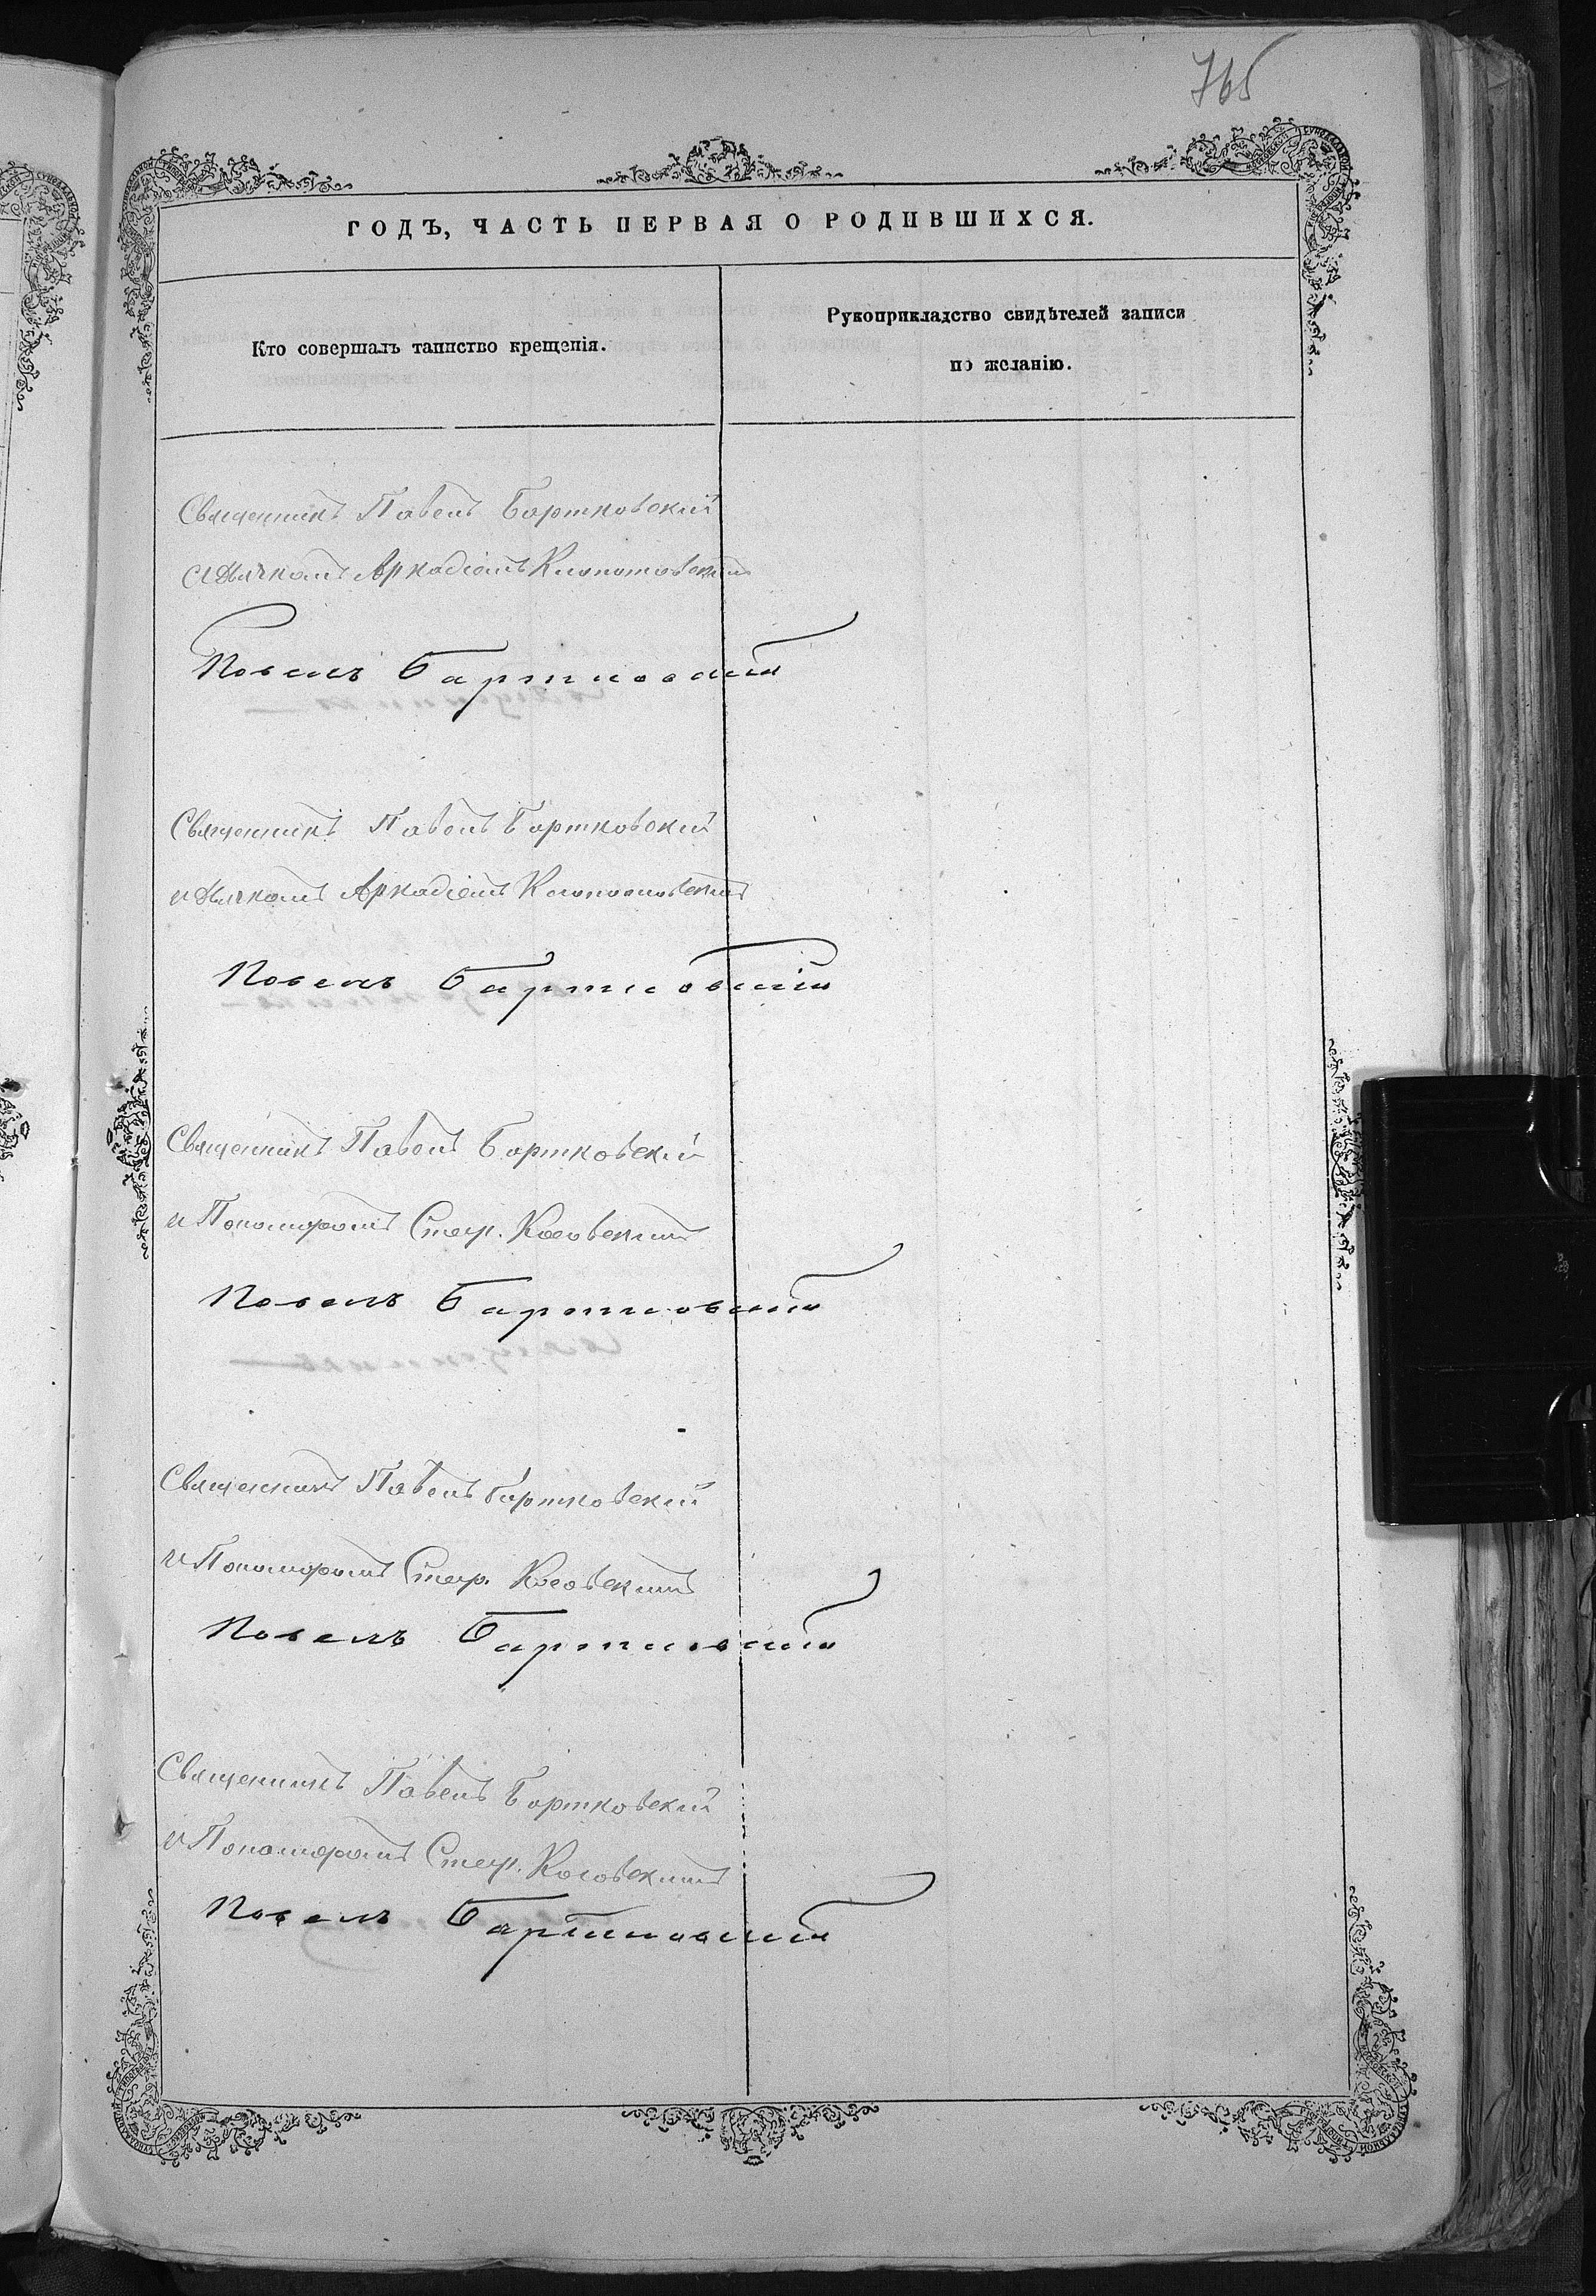 765
ГОДЪ, ЧАСТЬ ПЕРВАЯ О РОДИВШИХСЯ.
Кто совершалъ таинство крещенія.
Рукоприкладство свидѣтелей записи
по желанію.
Священникъ Павелъ Бартковскій
съ Дьячкомъ Аркадіемъ Клопотовскимъ
Павелъ Бартковскій
Священникъ Павелъ Бартковскій
и Дьячкомъ Аркадіемъ Клопотовскимъ
Павелъ Бартковскій
Священникъ Павелъ Бартковскій
и Пономаремъ Стеф. Косовскимъ
Павелъ Бартковскій
Священникъ Павелъ Бартковскій
и Пономаремъ Стеф. Косовскимъ
Павелъ Бартковскій
Священникъ Павелъ Бартковскій
и Пономаремъ Стеф. Косовскимъ
Павелъ Бартковскій